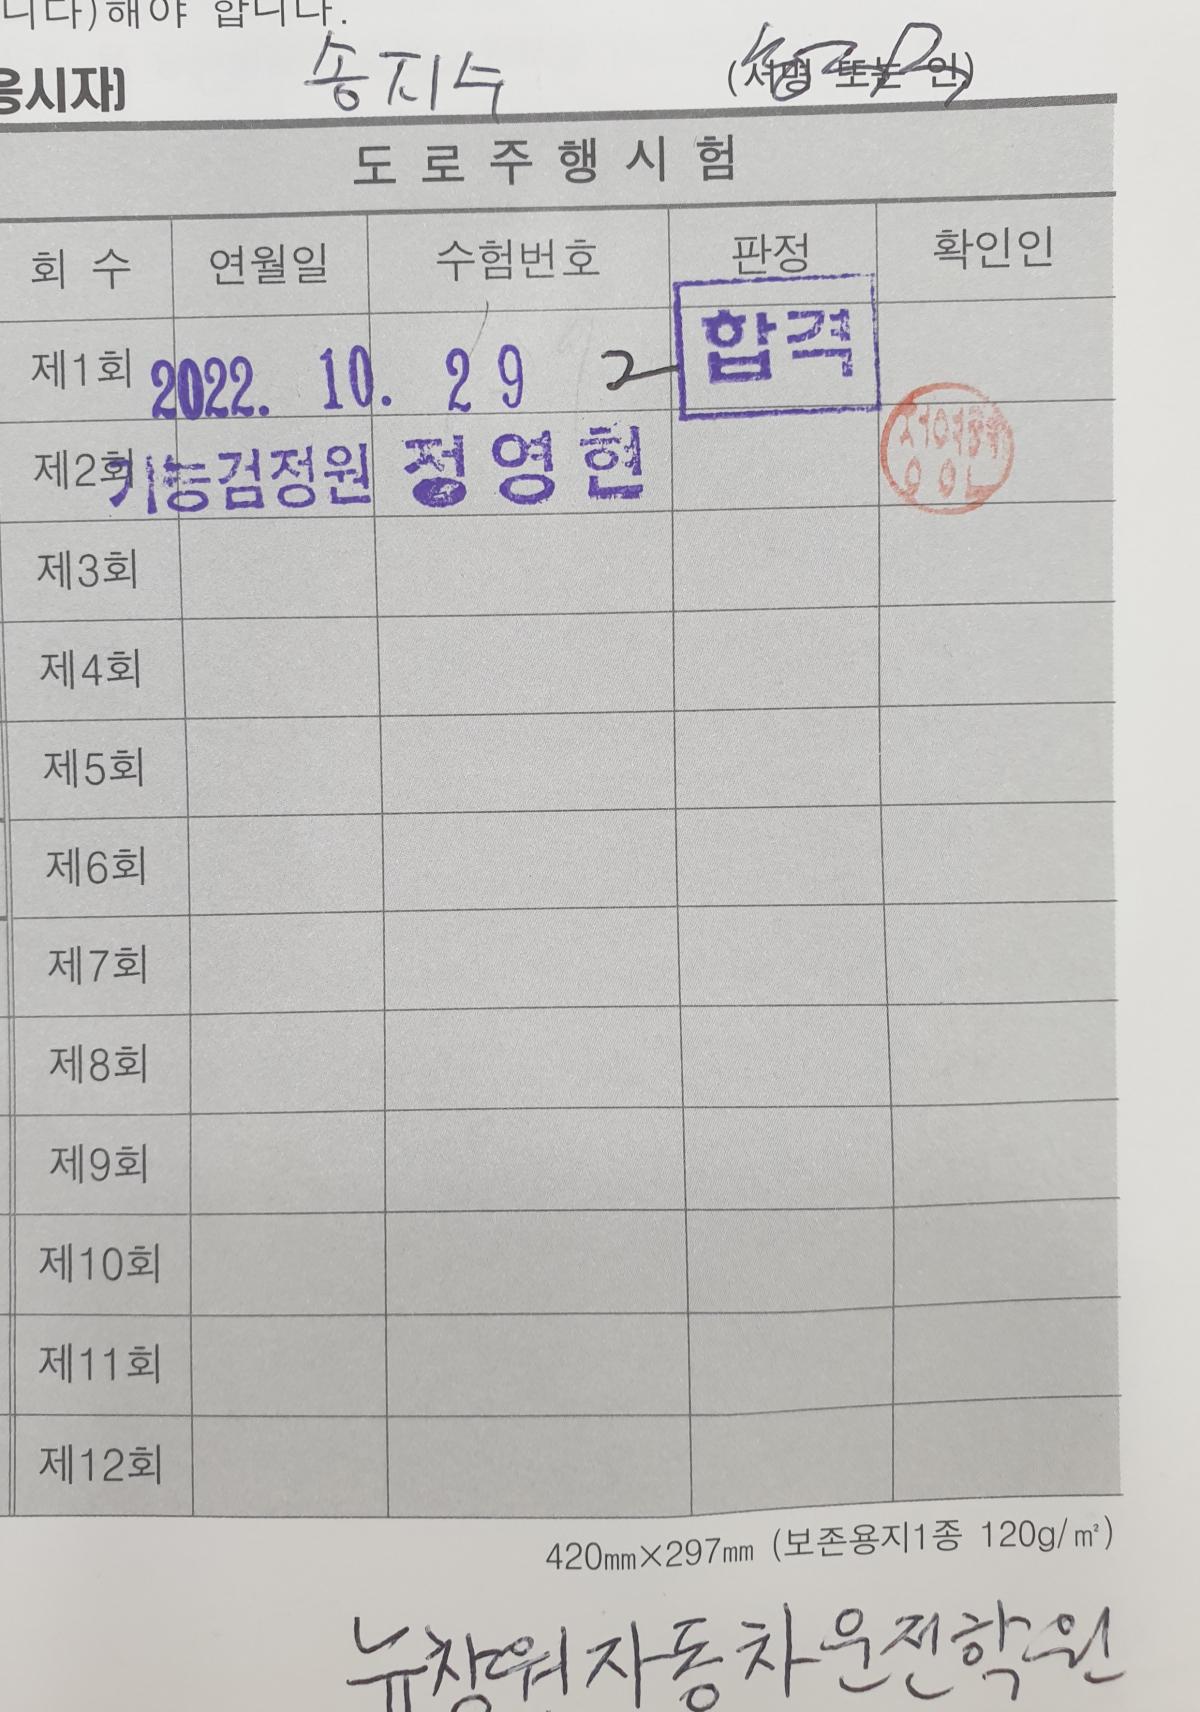 니다)해야 합니다.
응시자] 송지수 (서명 또는 인)
도로주행시험
회 수 연월일 수험번호 판정 확인인
제1회 2022. 10. 29 2 합격
제2회 기능검정원 정영현
제3회
제4회
제5회
제6회
제7회
제8회
제9회
제10회
제11회
제12회
420㎜×297㎜ (보존용지1종 120g/㎡)
뉴창원자동차운전학원